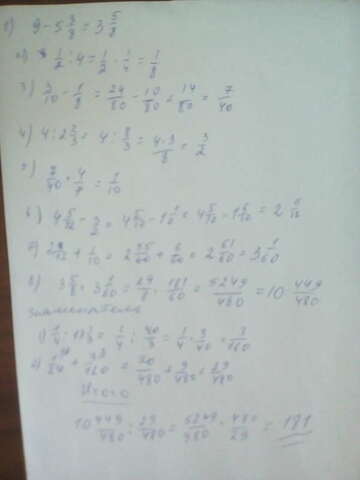 1) 9 - 5 3/8 = 3 5/8
2) 1/2 : 4 = 1/2 · 1/4 = 1/8
3) 3/10 - 1/8 = 24/80 - 10/80 = 14/80 = 7/40
4) 4 : 2 2/3 = 4 : 8/3 = 4·3/8 = 3/2
7/40 · 4/7 = 1/10
6) 4 5/12 - 3/2 = 4 5/12 - 1 1/2 = 4 5/12 - 1
+ 1/10 = 2 55/60 + 6/60 = 2 61/60 = 3 1/60
8) 3 5/8 · 3 1/60 = 29/8 · 181/60 = 5249/480 = 10 449/480
знаменатель
1) 1/4 : 13 1/3 = 1/4 : 40/3 = 1/4 · 3/40 = 3/160
2) 1/24 + 3/160 = 20/480 + 9/480 = 29/480
Итого
10 449/480 : 29/480 = 5249/480 · 480/29 = 181